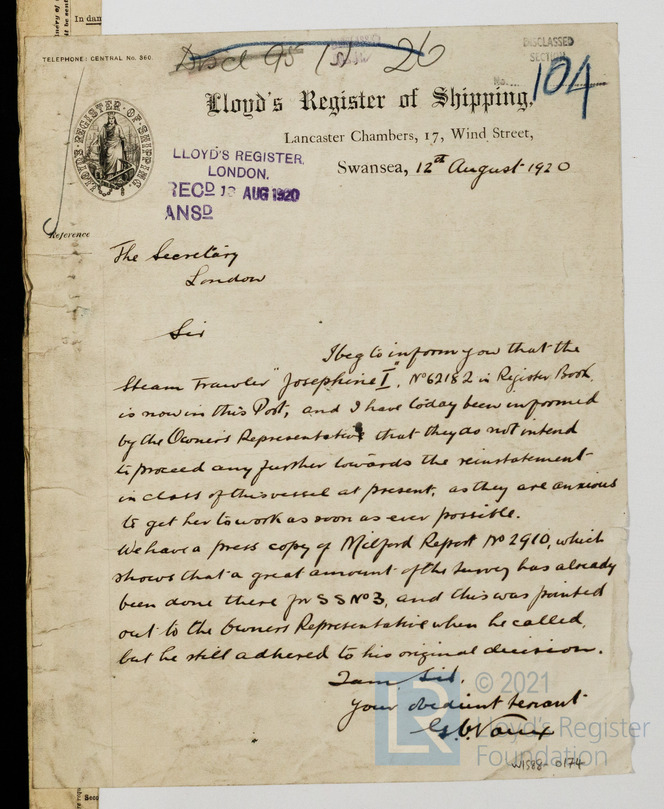 In dam
TELEPHONE: CENTRAL No. 360.
26
DISCLASSED
SECTION
No.
104
LLOYD'S REGISTER OF SHIPPING
Lloyd's Register of Shipping.
Lancaster Chambers, 17, Wind Street,
Swansea, 12th August 1920
LLOYD'S REGISTER,
LONDON.
RECD 13 AUG 1920
ANSD
Reference
The Secretary
London
Sir
I beg to inform you that the
Steam Trawler "Josephine I", No 62182 in Register Book,
is now in this Port, and I have today been informed
by the Owners Representative that they do not intend
to proceed any further towards the reinstatement
in class of this vessel at present, as they are anxious
to get her to work as soon as ever possible.
We have a press copy of Milford Report No 2910, which
shows that a great amount of the survey has already
been done there for SS No 3, and this was pointed
out to the Owners Representative when he called,
but he still adhered to his original decision.
I am, Sir,
Your obedient servant
© 2021
LR
Lloyd's Register
Foundation
W1588-0174